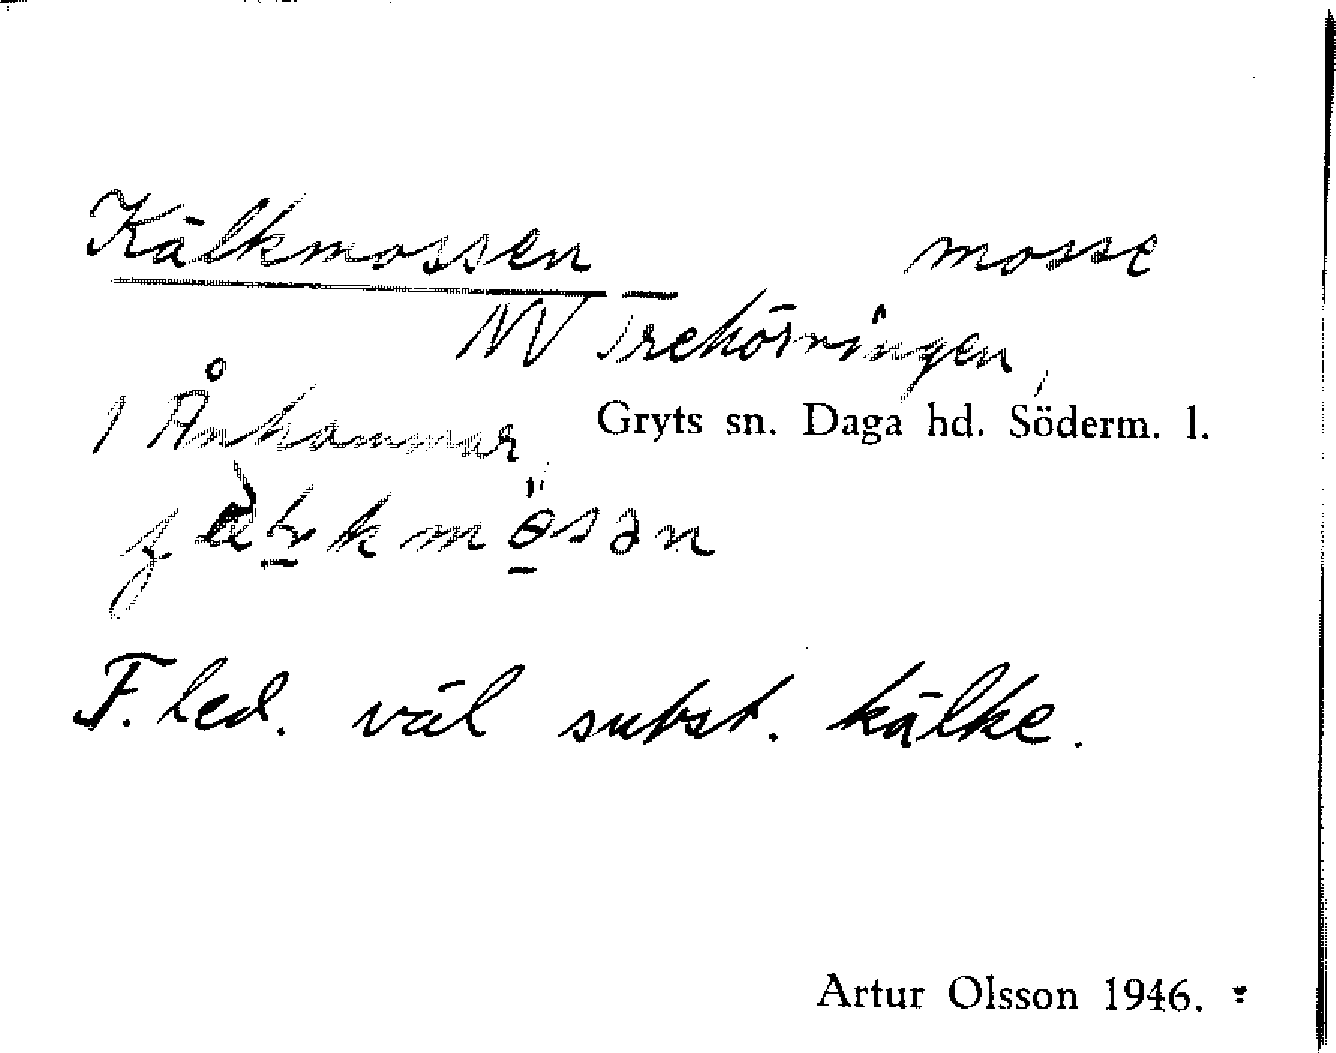 Kälkmossen mosse
NV Trehörningen,
1 Ånhammar, Gryts sn. Daga hd. Söderm. l.
F.led. väl subst. kälke.
Artur Olsson 1946.